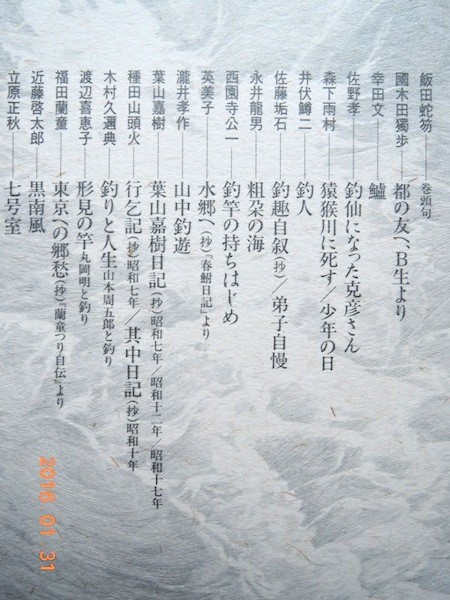 飯田蛇笏――巻頭句
國木田獨歩――都の友へ、B生より
幸田文――鱸
佐野孝――釣仙になった克彦さん
森下雨村――猿猴川に死す/少年の日
井伏鱒二――釣人
佐藤垢石――釣趣自叙(抄)/弟子自慢
永井龍男――粗朶の海
西園寺公一――釣竿の持ちはじめ
英美子――水郷へ(抄)『春鮒日記』より
瀧井孝作――山中釣遊
葉山嘉樹――葉山嘉樹日記(抄)昭和七年/昭和十二年/昭和十七年
種田山頭火――行乞記(抄)昭和七年/其中日記(抄)昭和十年
木村久邇典――釣りと人生 山本周五郎と釣り
渡辺喜恵子――形見の竿 丸岡明と釣り
福田蘭童――東京への郷愁(抄)『蘭童つり自伝』より
近藤啓太郎――黒南風
立原正秋――七号室
2016.01.31